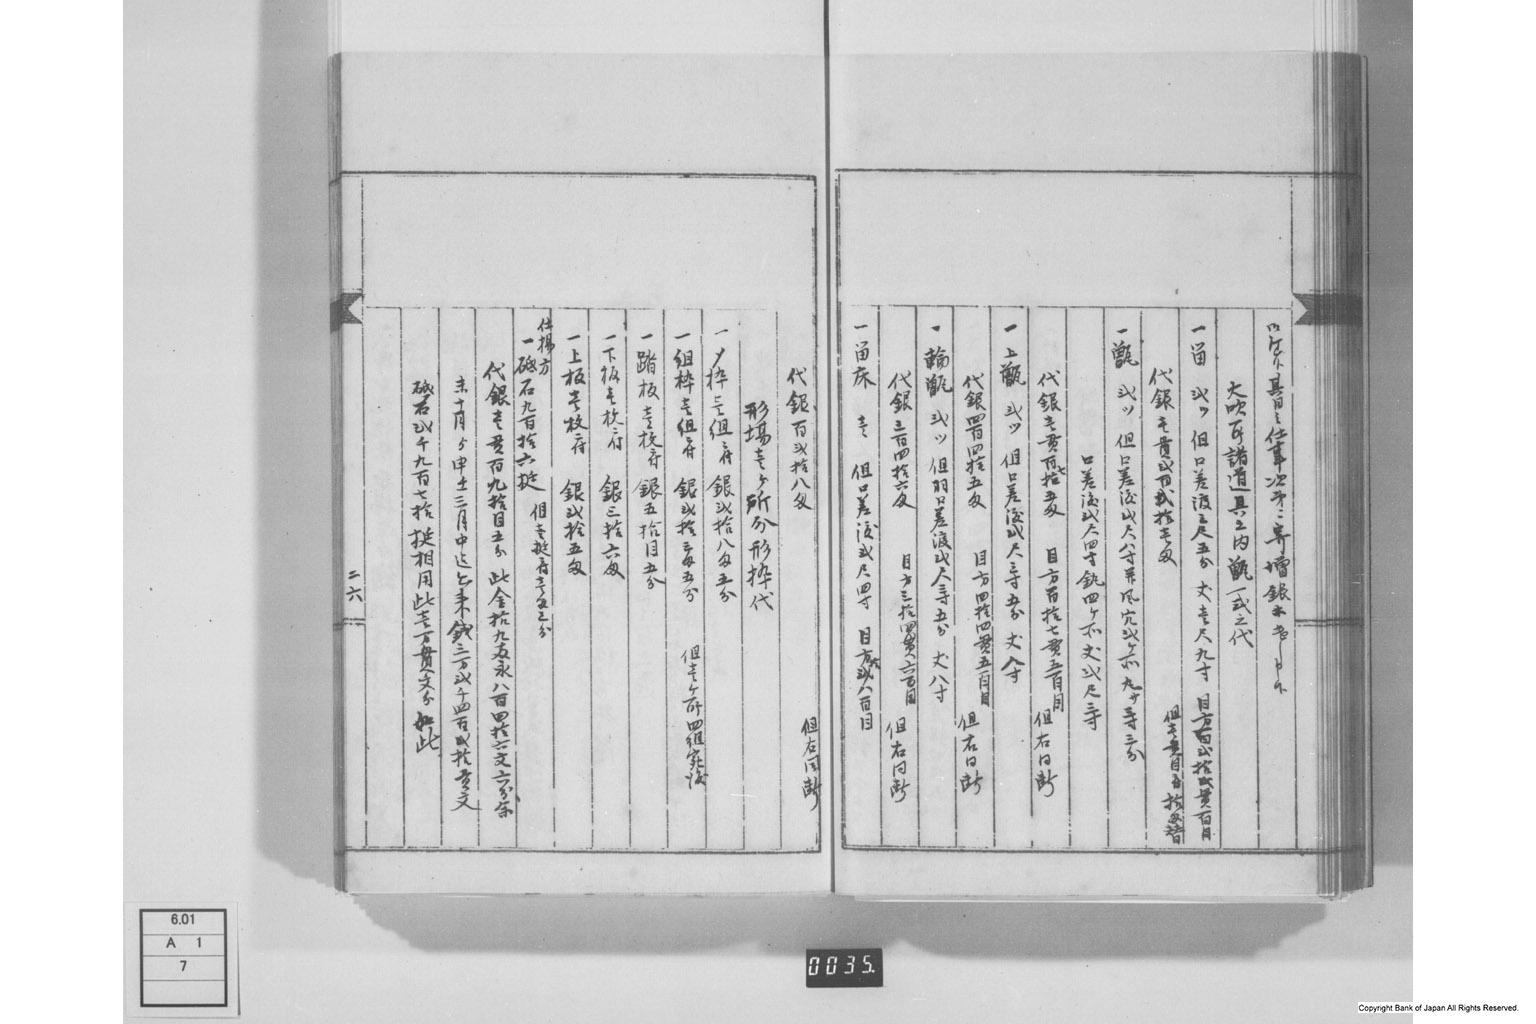 大吹所諸道具之内甑一式之代
一 留 弐ツ 但口差渡三尺五分 丈壱尺九寸 目方百弐拾弐貫百目
代銀壱貫弐百弐拾壱匁
一 甑 弐ツ 但口差渡弐尺八寸 風穴弐ヶ所
口差渡弐尺四寸 四ヶ所丈弐尺三寸
代銀壱貫百拾五匁 目方百拾七貫五百目 但右同断
一 上甑 弐ツ 但口差渡弐尺三寸五分 丈八寸
代銀四百四拾五匁 目方四拾四貫五百目 但右同断
一 輪甑 弐ツ 但羽口差渡弐尺三寸五分 丈八寸
代銀三百四拾六匁 目方三拾四貫六百目 但右同断
一 留床 壱 但口差渡弐尺四寸 目方 弐八百目
代銀百弐拾八匁 但右同断
形場壱ヶ所分形枠代
一 〆枠壱組ニ付 銀弐拾八匁五分
一 組枠壱組ニ付 銀弐拾三匁五分 但壱ヶ所四組宛渡
一 踏板壱枚ニ付 銀五拾目五分
一 下板壱枚ニ付 銀三拾六匁
一 上板壱枚ニ付 銀弐拾五匁
仕揚方
一 砥石九百拾六挺 但壱挺ニ付壱匁三分
代銀壱貫百九拾目五分 此金拾九両永八百四拾六文六分余
未十月ゟ申三月中迄出来銭三万弐千四百弐拾貫文
砥石弐千九百七拾挺相用此壱万貫文分如此
二六
6.01
A 1
7
0035.
Copyright Bank of Japan All Rights Reserved.